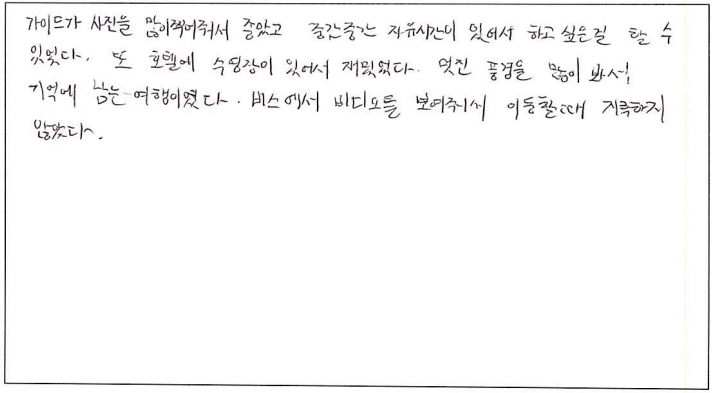 가이드가 사진을 많이찍어줘서 좋았고 중간중간 자유시간이 있어서 하고 싶은걸 할 수
있었다. 또 호텔에 수영장이 있어서 재밌었다. 멋진 풍경을 많이 봐서
기억에 남는 여행이였다. 버스에서 비디오를 보여주셔서 이동할때 지루하지
않았다.